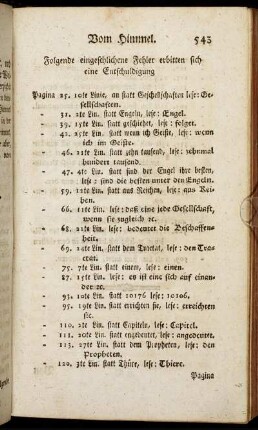 Vom Himmel. 543
Folgende eingeschlichene Fehler erbitten sich
eine Entschuldigung
Pagina 25. 10te Linie, an statt Geschellschaften lese: Ge-
sellschaften.
- 31. 2te Lin. statt Engeln, lese: Engel.
- 39. 15te Lin. statt geschiehet, lese: folget.
- 42. 25te Lin. statt wenn ich Geiste, lese: wenn
ich im Geiste.
- 46. 22te Lin. statt zehn tausend, lese: zehnmal
hundert tausend.
- 47. 4te Lin. statt sind der Engel ihr besten,
lese: sind die besten unter den Engeln.
- 59. 12te Lin. statt aus Reichen, lese: aus Rei-
hen.
- 66. 11te Lin. lese: daß eine jede Gesellschaft,
wenn sie zugleich ꝛc.
- 68. 21te Lin. lese: bedeutet die Beschaffen-
heit.
- 69. 24te Lin. statt dem Tractat, lese: den Tra-
ctat.
- 75. 7te Lin. statt einem, lese: einen.
- 87. 15te Lin. lese: es ist eine sich auf einan-
der ꝛc.
- 92. 10te Lin. statt 10176 lese: 10106.
- 95. 19te Lin. statt errichten sie, lese: erreichten
sie.
- 110. 2te Lin. statt Capiteln, lese: Capitel.
- 111. 20te Lin. statt angedeutet, lese: angedeutet.
- 113. 27te Lin. statt dem Propheten, lese: den
Propheten.
- 120. 3te Lin. statt Thüre, lese: Thiere.
Pagina